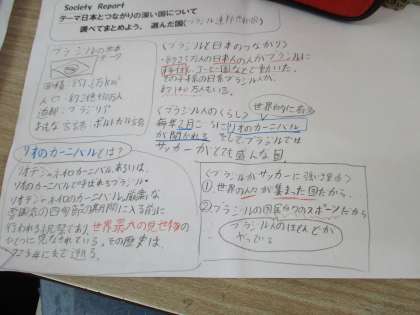 Society Report
テーマ日本とつながりの深い国について
調べてまとめよう。選んだ国(ブラジル連邦共和国)
ブラジルの基本
データ
面積・851.2万km²
人口・約2億
首都・ブラジリア
おもな言語・ポルトガル語
〈ブラジルと日本のつながり〉
万人の日本人の人がブラジルに
移住、コーヒー園などで働いた。
その子孫の日系ブラジル人が、
約 万人もいる。
〈ブラジル人のくらし〉
世界的に有名
毎年2月ごろにリオのカーニバル
が開かれる そしてブラジルでは
サッカーがとても盛んな国
リオのカーニバルとは?
リオデジャネイロのカーニバル、あるいは、
リオのカーニバルで呼ばれるブラジル・
リオデジャネイロのカーニバル。厳粛な
四旬節の期間に入る前に
行われる祝祭であり、世界最大の見せ物の
ひとつに見なされている。その歴史は、
1723年にまで遡る。
〈ブラジルがサッカーに強い理由〉
①世界の人々が集まった国だから。
②ブラジルの国民的のスポーツだから
ブラジル人のほとんどが
やっている